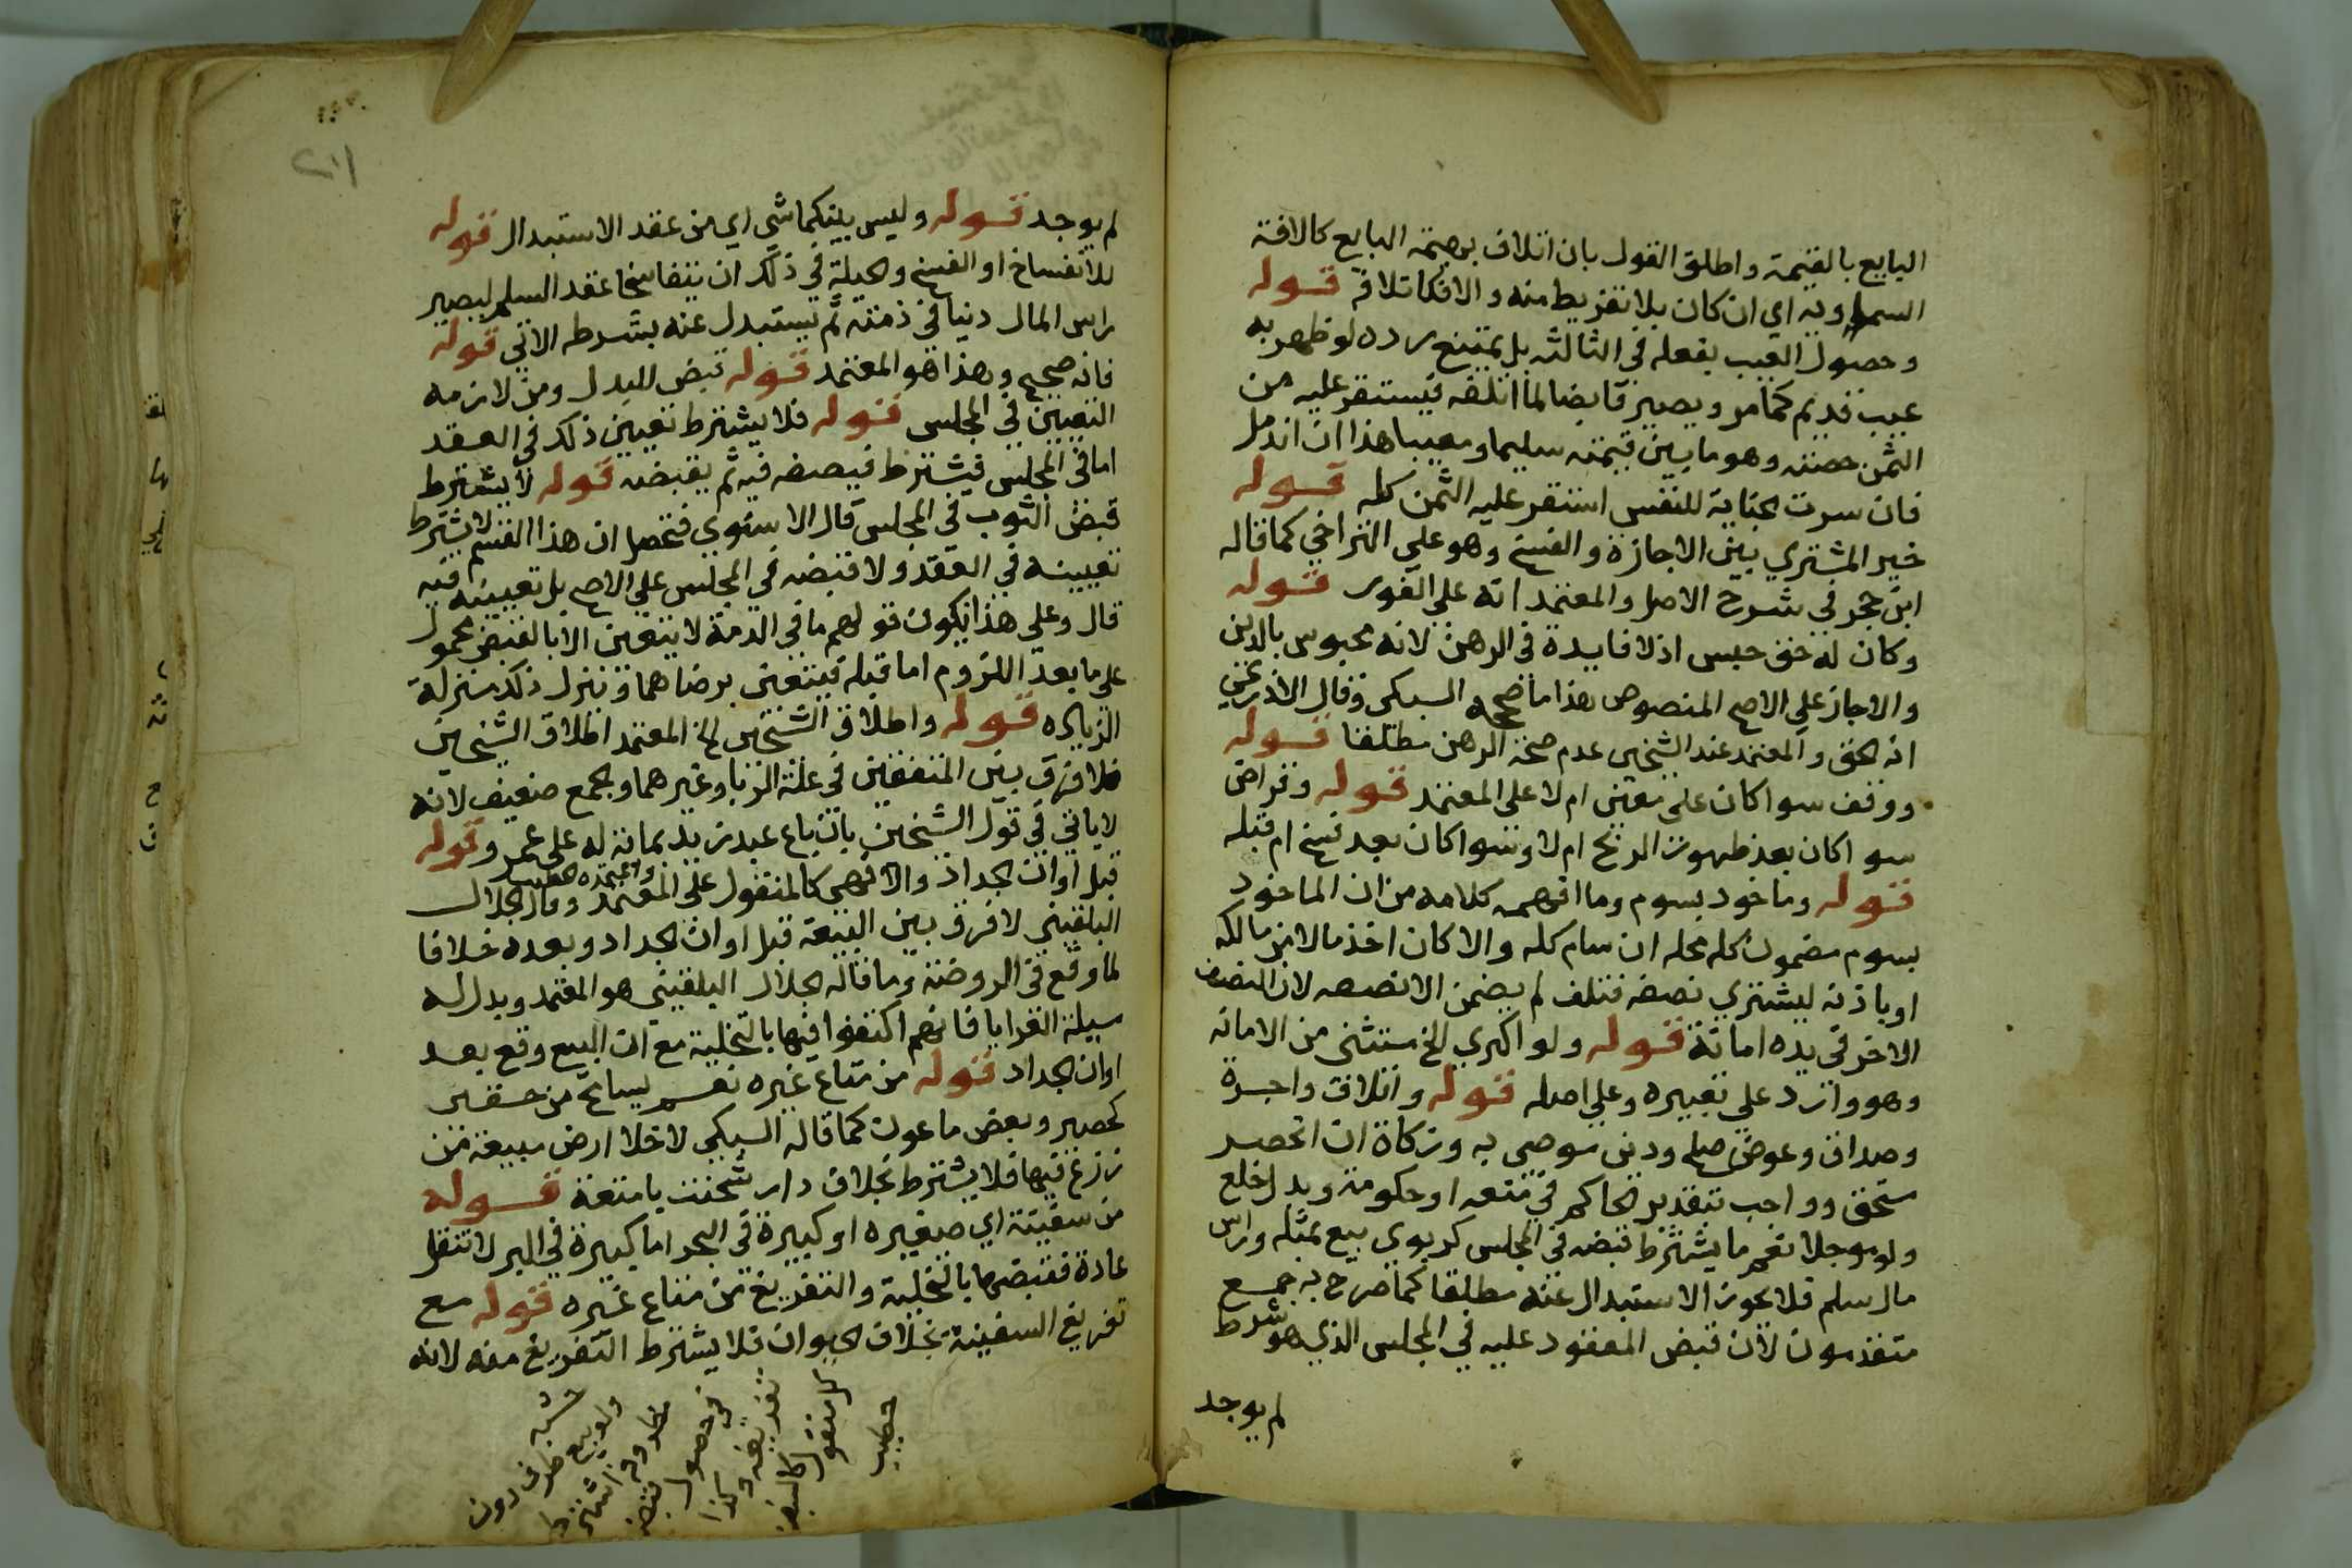 البايع بالقيمة واطلق القول بان اتلاف برصيمة البايع كالافة
السماويه اي ان كان بلا تفريط منه والا فكاتلافه قوله
وحصول العيب بفعله في الثالثه بل يمتنع رده لو ظهر به
عيب قديم كما مر ويصير قابضا لما اتلفه فيستقر عليه من
الثمن حصته وهو ما بين قيمته سليما ومعيبا هذا ان اندمل
فان سرت الجناية للنفس استقر عليه الثمن كله قوله
خير المشتري بين الاجازة والفسخ وهو علي التراخي كما قاله
ابن حجر في شرح الاصل والمعتمد انه علي الفور قوله
وكان له حق حبس اذ لا فايدة في الرهن لانه محبوس بالدين
والا جاز علي الاصح المنصوص هذا ما صححه السبكي وقال الاذرعي
انه الحق والمعتمد عند الشيخين عدم صحة الرهن مطلقا قوله
ووقف سوا كان علي معين ام لا علي المعتمد قوله وقراض
سوا كان بعد ظهور الربح ام لا وسوا كان بعد فسخ ام قبله
قوله وماخوذ بسوم وما افهمه كلامه من ان الماخوذ
بسوم مضمون كله محله ان سام كله والا كان اخذ مالا من مالكه
او باذنه ليشتري نصفه فتلف لم يضمن الا نصفه لان النصف
الاخر في يده امانة قوله ولو اكري الخ مستثني من الامانه
وهو وارد علي تعبيره وعلي اصله قوله واتلاف واجرة
وصداق وعوض صلح ودين موصي به وزكاة ان انحصر
مستحق وواجب بتقدير الحاكم في متعه او حكومة وبدل خلع
ولو موجلا نعم ما يشترط قبضه في المجلس كربوي بيع بمثله وراس
مال سلم فلا يجوز الاستبدال عنه مطلقا كما صرح به جمع
متقدمون لان قبض المعقود عليه في المجلس الذي هو شرط
لم يوجد
٢١١
لم يوجد قوله وليس بينكما شي اي من عقد الاستبدال قوله
للانفساخ او الفسخ والحيلة في ذلك ان يتفاسخا عقد السلم ليصير
راس المال دينا في ذمته ثم يستبدل عنه بشرطه الاتي قوله
فانه صحيح وهذا هو المعتمد قوله قبض للبدل ومن لازمه
التعيين في المجلس قوله فلا يشترط تعيين ذلك في العقد
اما في المجلس فيشترط فيصفه فيه ثم يقبضه قوله لا يشترط
قبض الثوب في المجلس قال الاسنوي فتحصل ان هذا القسم لا يشترط
تعيينه في العقد ولا قبضه في المجلس علي الاصح بل تعيينه فيه
قال وعلي هذا يكون قولهم ما في الذمة لا يتعين الا بالقبض محمول
علي ما بعد اللزوم اما قبله فيتعين برضاهما وتنزل ذلك منزلة
الزيادة قوله واطلاق الشيخين الخ المعتمد اطلاق الشيخين
فلا فرق بين المتفقين في علة الربا وغيرهما والجمع ضعيف لانه
لا ياتي في قول الشيخين بان باع عبد زيد بماية له علي عمرو قوله
قبل اوان الجداد والا فهي كالمنقول علي المعتمد وقال الجلال
واعتمده الخطيب
البلقيني لا فرق بين البيعة قبل اوان الجداد وبعده خلافا
لما وقع في الروضة وما قاله الجلال البلقيني هو المعتمد ويدل له
مسيلة العرايا فانهم اكتفوا فيها بالتخلية مع ان البيع وقع بعد
اوان الجداد قوله من متاع غيره نعم يسامح من حقير
كحصير وبعض ماعون كما قاله السبكي لا خلا ارض مبيعة من
زرع فيها فلا يشترط بخلاف دار شحنت بامتعة قوله
من سفينة اي صغيره او كبيرة في البحر اما كبيرة في البر لا تنقل
عادة فقبضها بالتخلية والتفريغ من متاع غيره قوله مع
تفريغ السفينة بخلاف الحيوان فلا يشترط التفريغ منه لانه
حشيه
ولو بيع ظرف دون
مظروفه اشترط
في حصول قبضه
تفريغه وكذا
كل منقول كالسفن
خطيب